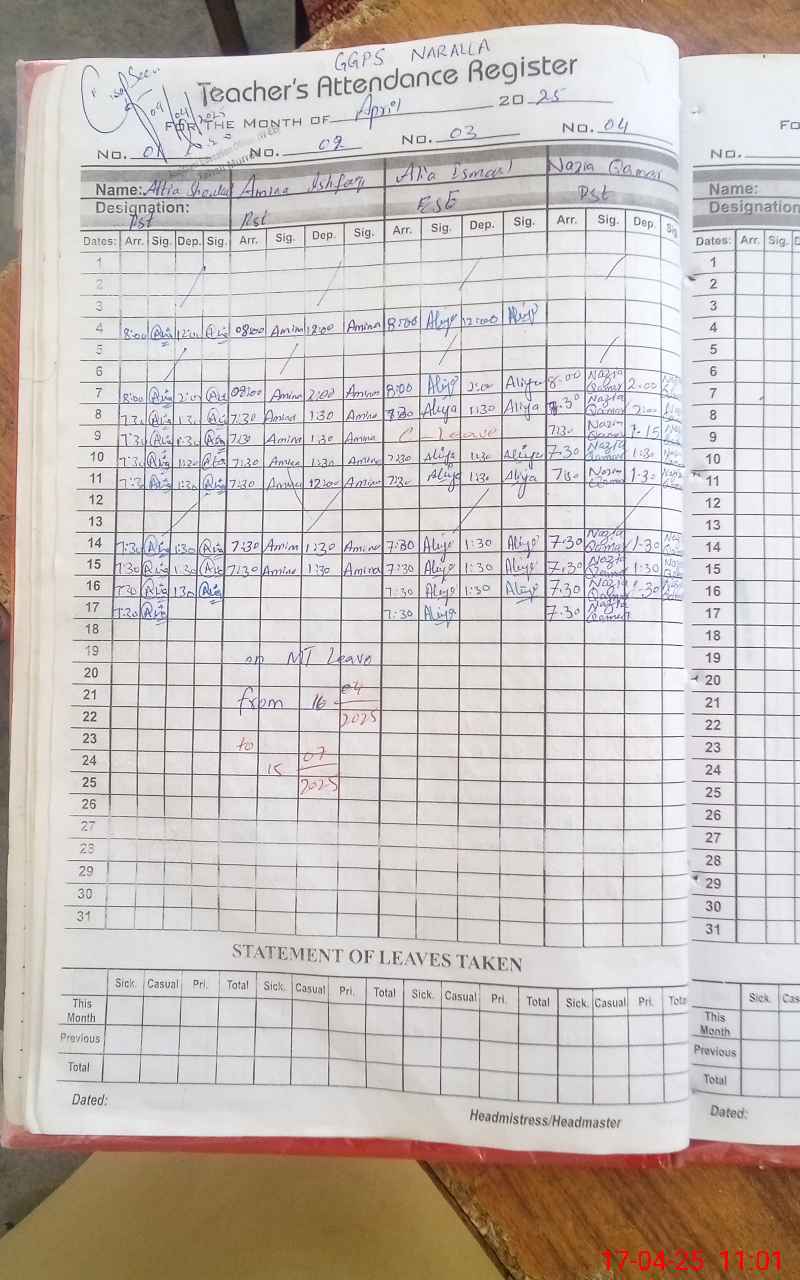 GGPS NARALLA
Teacher's Attendance Register
Seen
09/04/2025
FOR THE MONTH OF April 2025
No. 01 No. 02 No. 03 No. 04
Name: Attia Amina Ishfaq Alia Ismail Nazia Qamar
Designation: Pst Pst ESE Pst
Dates: Arr. Sig. Dep. Sig. Arr. Sig. Dep. Sig. Arr. Sig. Dep. Sig. Arr. Sig. Dep. Sig.
1
2
3
4 8:00 Atia 12:00 Atia 08:00 Amina 12:00 Amina 8:00 Aliya 12:00 Aliya
5
6
7 8:00 Atia 2:00 Atia 08:00 Amina 2:00 Amina 8:00 Aliya 2:00 Aliya 8:00 Nazia Qamar 2:00 Nazia
8 7:30 Atia 1:30 Atia 7:30 Amina 1:30 Amina 7:30 Aliya 1:30 Aliya 7:30 Nazia Qamar 2:00
9 7:30 Atia 1:30 Atia 7:30 Amina 1:30 Amina C-Leave 7:30 Nazia Qamar 1:15 Nazia
10 7:30 Atia 1:30 Atia 7:30 Amina 1:30 Amina 7:30 Aliya 1:30 Aliya 7:30 Nazia Qamar 1:30 Nazia
11 7:30 Atia 1:30 Atia 7:30 Amina 12:00 Amina 7:30 Aliya 1:30 Aliya 7:30 Nazia Qamar 1:30 Nazia
12
13
14 7:30 Atia 1:30 Atia 7:30 Amina 1:30 Amina 7:30 Aliya 1:30 Aliya 7:30 Nazia Qamar 1:30 Nazia
15 7:30 Atia 1:30 Atia 7:30 Amina 1:30 Amina 7:30 Aliya 1:30 Aliya 7:30 Nazia Qamar 1:30 Nazia
16 7:30 Atia 1:30 Atia 7:30 Aliya 1:30 Aliya 7:30 Nazia Qamar 1:30 Nazia
17 7:30 Atia 7:30 Aliya 7:30 Nazia Qamar
18
19 on MT Leave
20
21 from 16 04
22 2025
23 to
24 15 07
25 2025
26
27
28
29
30
31
STATEMENT OF LEAVES TAKEN
Sick. Casual Pri. Total Sick. Casual Pri. Total Sick. Casual Pri. Total Sick. Casual Pri. Total
This Month
Previous
Total
Dated:
Headmistress/Headmaster
FO
No.
Name:
Designation
Dates: Arr. Sig. D
1
2
3
4
5
6
7
8
9
10
11
12
13
14
15
16
17
18
19
20
21
22
23
24
25
26
27
28
29
30
31
Sick Cas
This Month
Previous
Total
Dated:
17-04-25 11:01